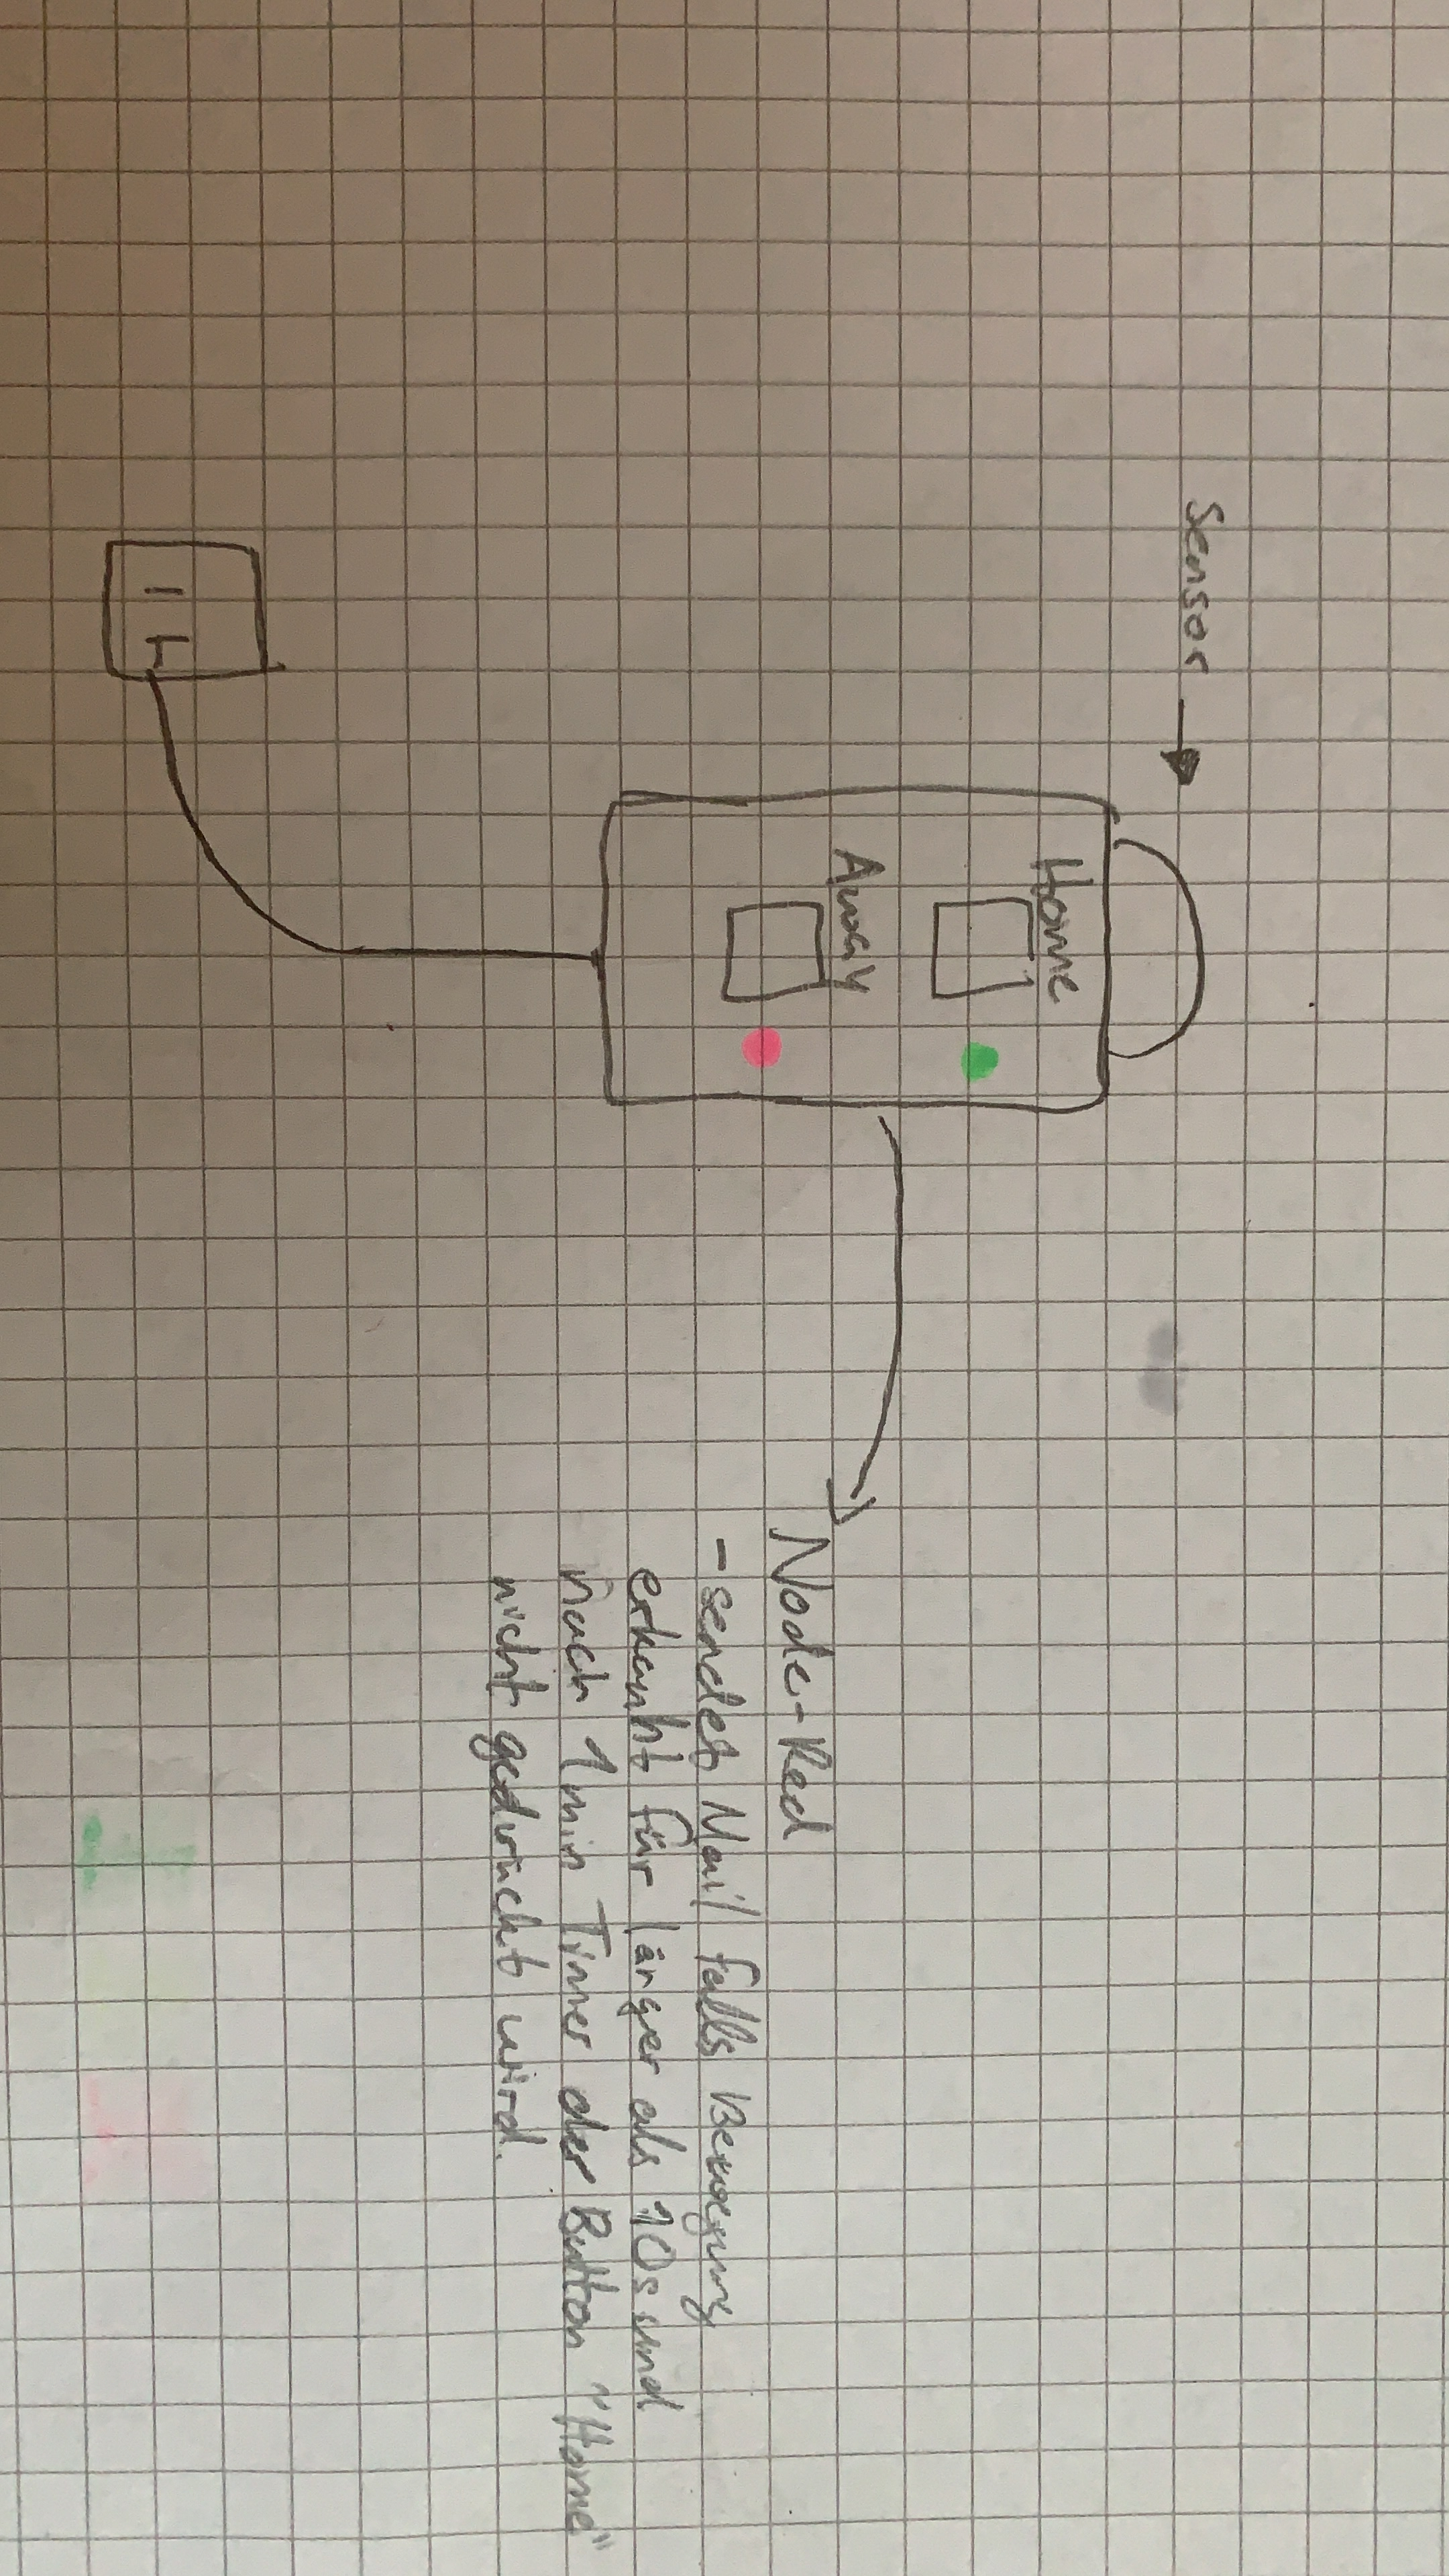 Sensor
Home
Away
Node-Red
- sendet Mail falls Bewegung
erkannt für länger als 10s und
nach 1min Timer der Button "Home"
nicht gedrückt wird.